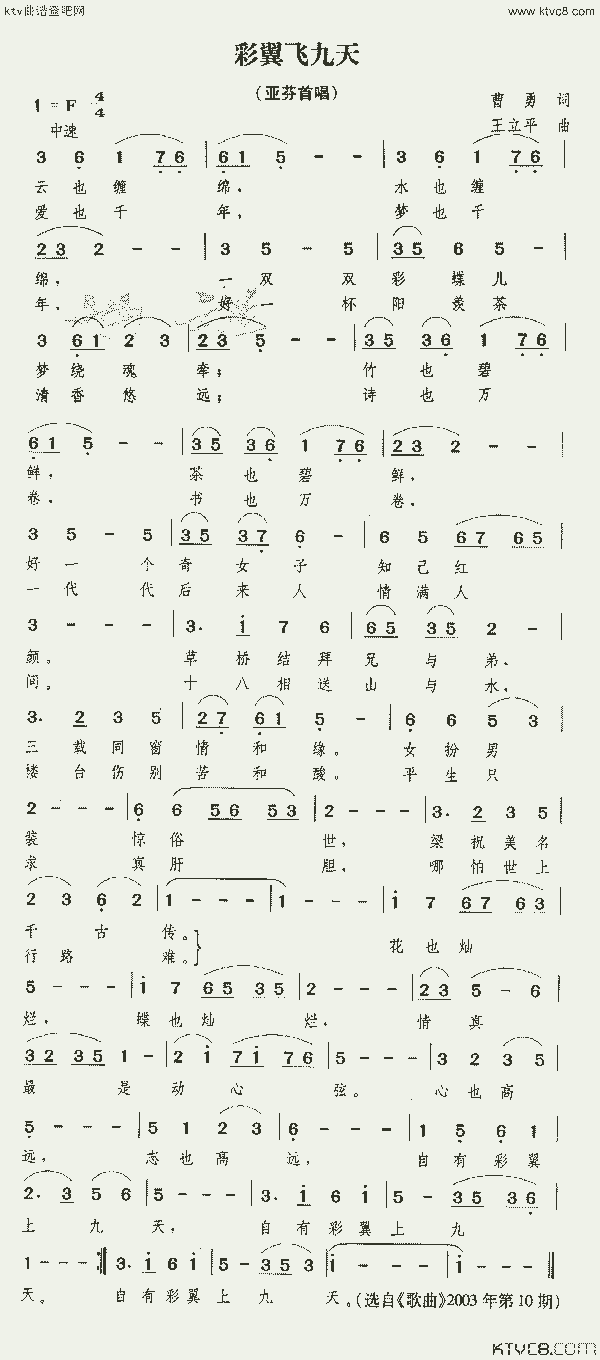 ktv曲谱查吧网 www.ktvc8.com
彩翼飞九天
(亚芬首唱)
1=F 4/4 曹勇 词
中速 王立平 曲
3 6 1 7 6 | 6 1 5 - - | 3 6 1 7 6 |
云也缠绵, 水也缠
爱也千年, 梦也千
2 3 2 - - | 3 5 - 5 | 3 5 6 5 - |
绵, 一双双彩蝶儿
年, 好一杯阳羡茶
3 6 1 2 3 | 2 3 5 - - | 3 5 3 6 1 7 6 |
梦绕魂牵; 竹也碧
清香悠远; 诗也万
6 1 5 - - | 3 5 3 6 1 7 6 | 2 3 2 - - |
鲜, 茶也碧鲜,
卷, 书也万卷,
3 5 - 5 | 3 5 3 7 6 - | 6 5 6 7 6 5 |
好一个奇女子知己红
一代代后来人情满人
3 - - - | 3. 1 7 6 | 6 5 3 5 2 - |
颜。 草桥结拜兄与弟,
间。 十八相送山与水,
3. 2 3 5 | 2 7 6 1 5 - | 6 6 5 3 |
三载同窗情和缘。女扮男
楼台伤别苦和酸。平生只
2 - - - | 6 6 5 6 5 3 | 2 - - - | 3. 2 3 5 |
装惊俗世, 梁祝美名
求真肝胆, 哪怕世上
2 3 6 2 | 1 - - - | 1 - - - | 1 7 6 7 6 3 |
千古传。 花也灿
行路难。
5 - - - | 1 7 6 5 3 5 | 2 - - - | 2 3 5 - 6 |
烂, 蝶也灿烂, 情真
3 2 3 5 1 - | 2 1 7 1 7 6 | 5 - - - | 3 2 3 5 |
最是动心弦。 心也高
5 - - - | 5 1 2 3 | 6 - - - | 1 5 6 1 |
远, 志也高远, 自有彩翼
2. 3 5 6 | 5 - - - | 3. 1 6 1 | 5 - 3 5 3 6 |
上九天, 自有彩翼上九
1 - - - :‖ 3. 1 6 1 | 5 - 3 5 3 | 1 - - - | 1 - - - ‖
天。 自有彩翼上九天。(选自《歌曲》2003年第10期)
KTVC8.COM